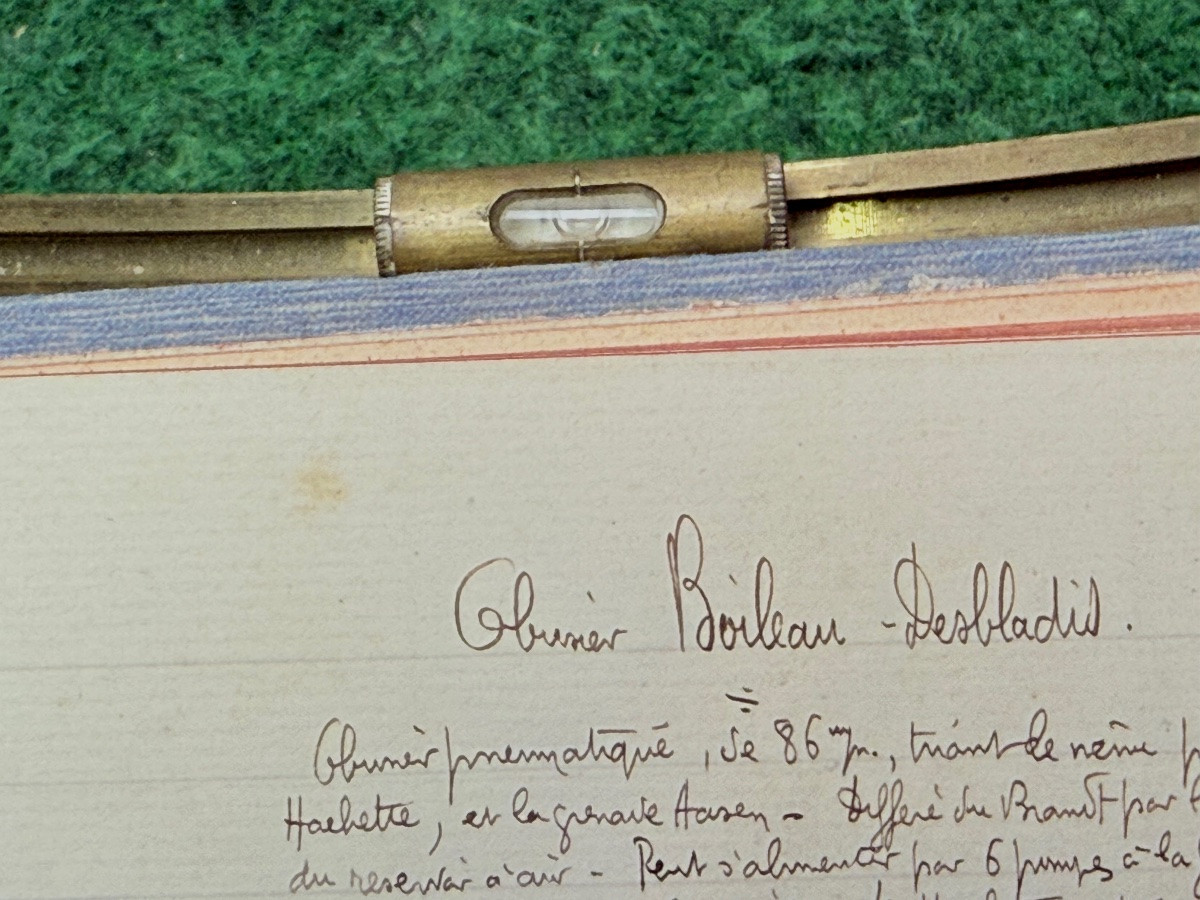 Obusier Boileau-Desbladis.
Obusier pneumatique, de 86 m/m., tirant le même
Hachette, et la grenade Aasen - Diffère du Brandt par
du reservoir à air - Peut s'alimenter par 6 pompes à la